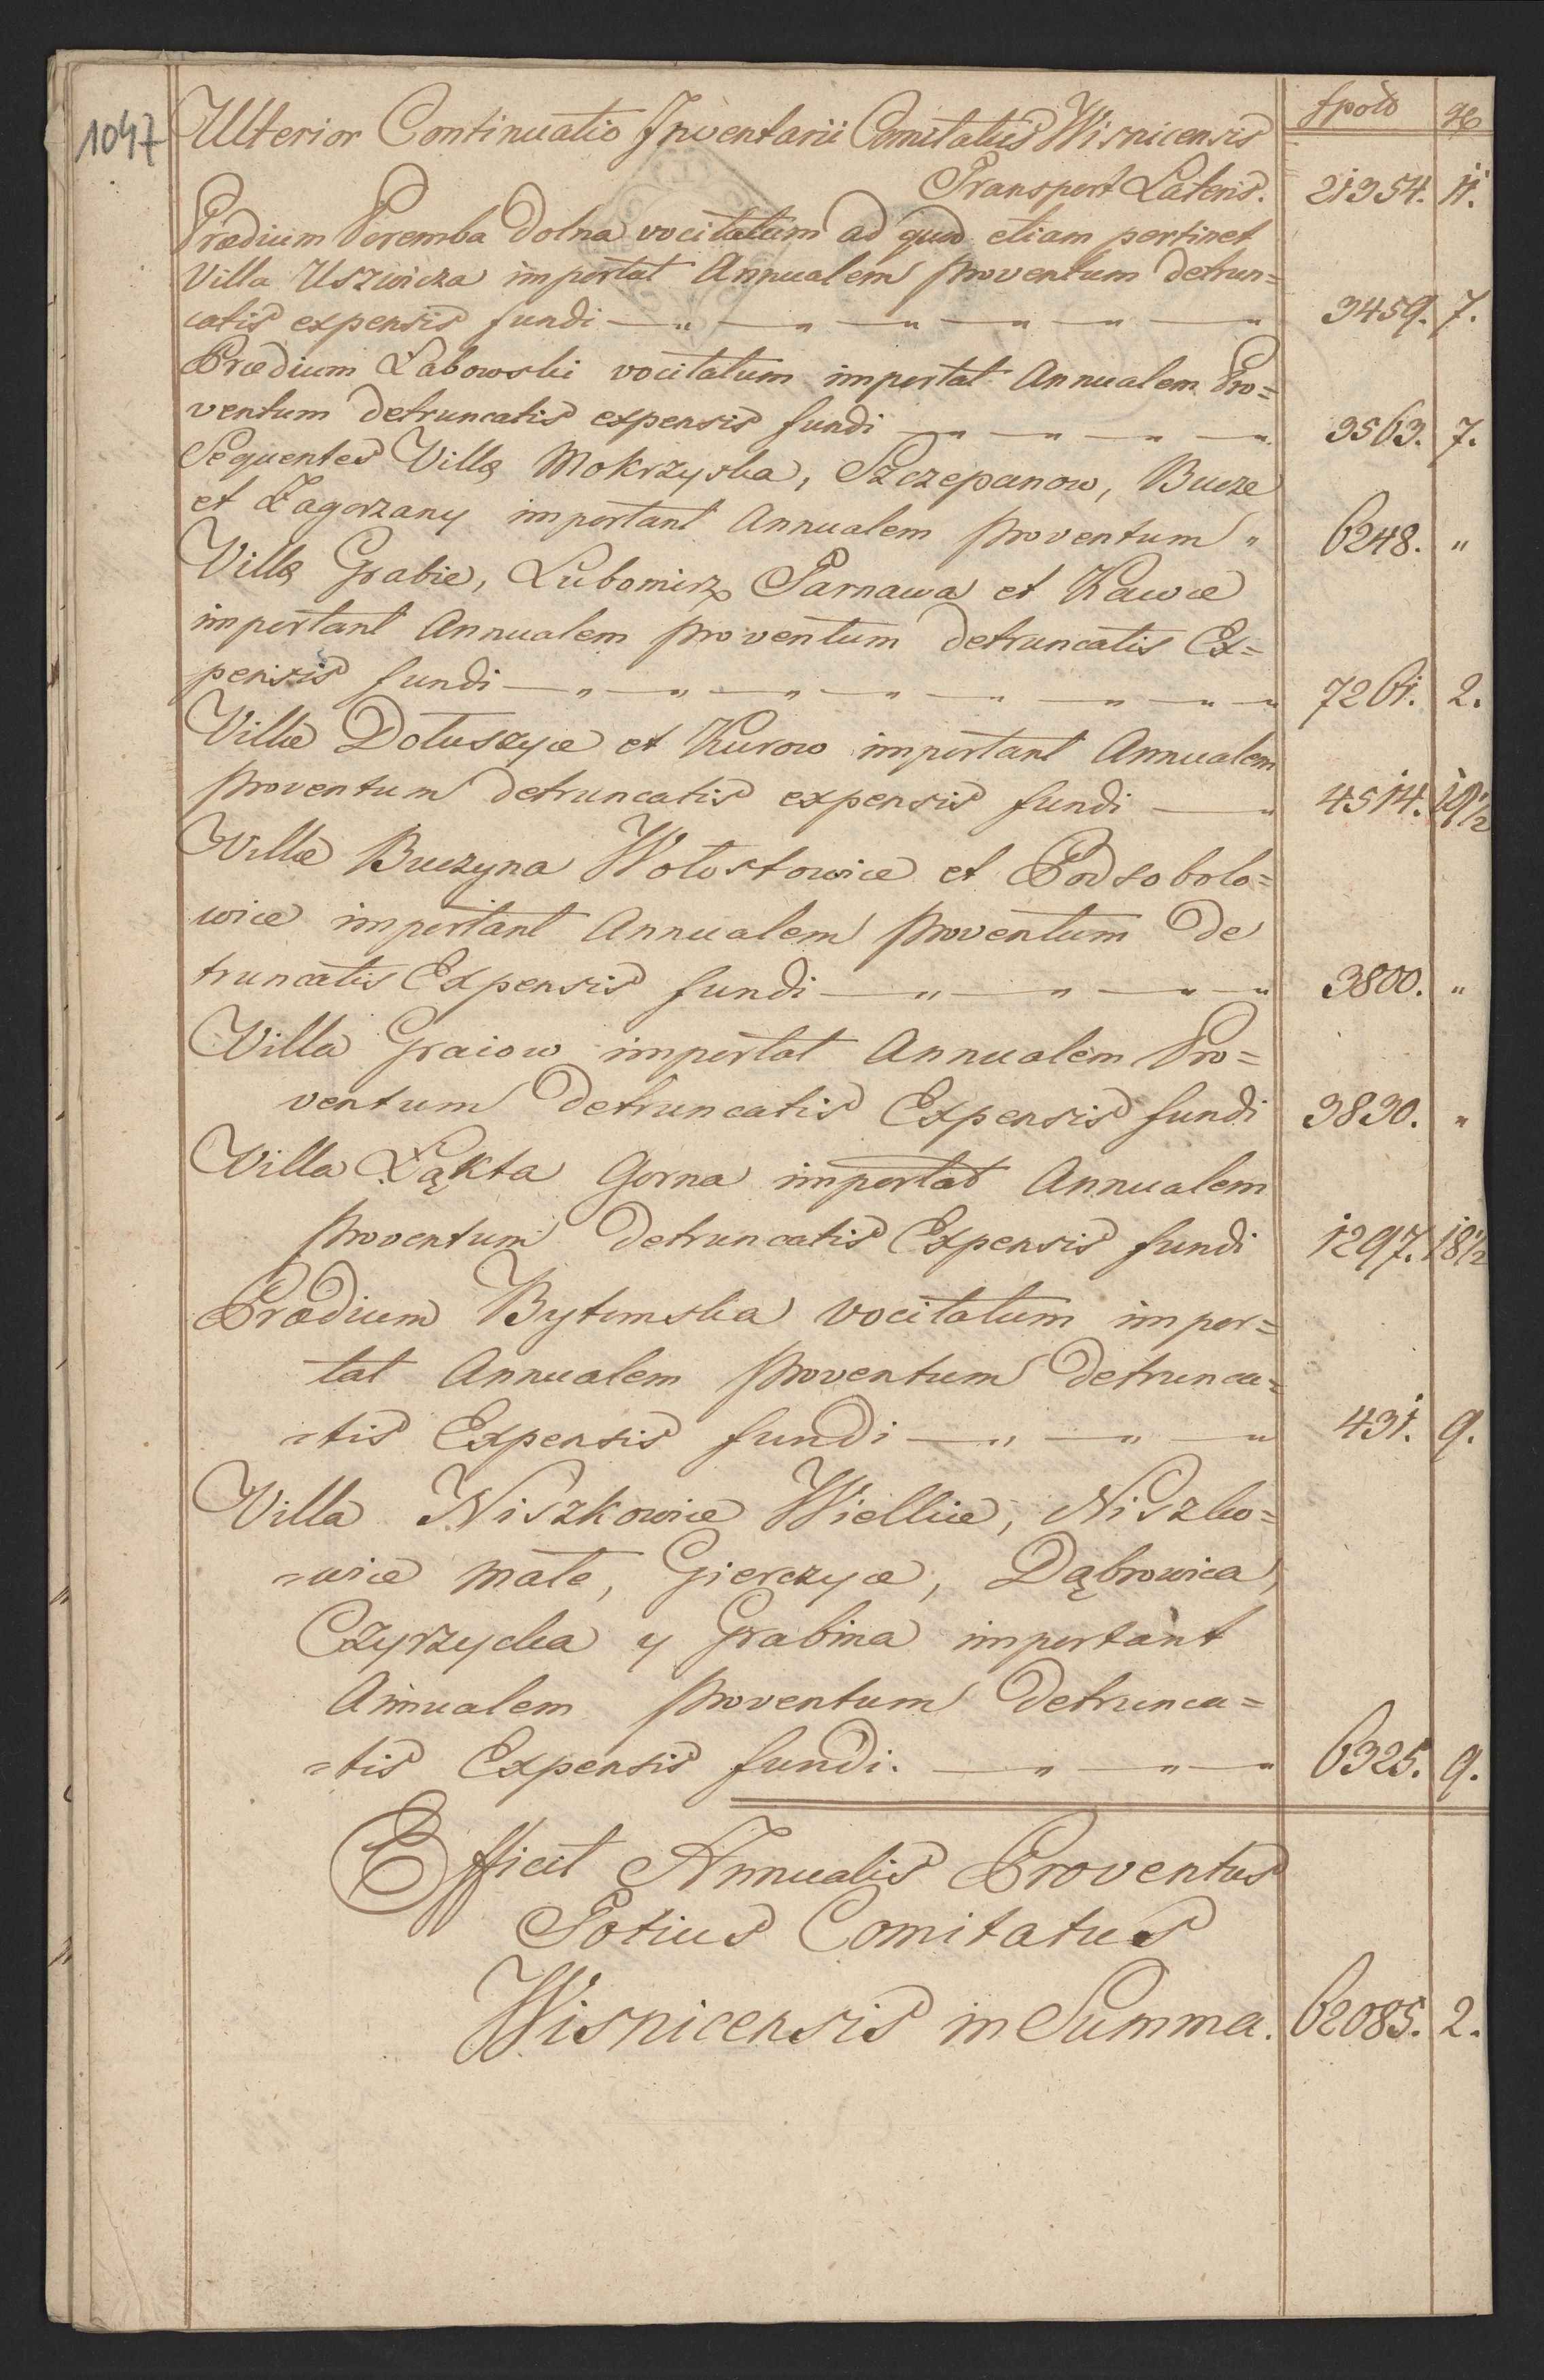 1047
Ulterior Continuatio Inventarii Comitatus Wisnicensis fpold gr
Transport Lateris. 21354. 11.
Prædium Poremba Dolna vocitatum ad quod etiam pertinet
Villa Uszwicza importat Annualem proventum detrun=
catis expensis fundi — " — " — " — " — " — " 3459. 7.
Prædium Labowski vocitatum importat Annualem Pro=
ventum detruncatis expensis fundi — " — " — " — " 3563. 7.
Sequentes Villæ Mokrzyska, Szczepanow, Bucze
et Zagorzany important Annualem proventum " 6248. "
Villæ Grabie, Lubomirz Tarnawa et Kawce
important Annualem proventum detruncatis Ex=
pensis fundi — " — " — " — " — " — " — " — " 7261. 2.
Villæ Dołuszyce et Kurow important Annualem
proventum detruncatis expensis fundi — " 4514. 19½
Villæ Buczyna Wołostowice et Podsobolo=
wice important Annualem proventum De
truncatis Expensis fundi — " — " — " — " 3800. "
Villa Graiow importat Annualem Pro=
ventum detruncatis Expensis fundi 3830. "
Villa Łąkta Gorna importat Annualem
proventum Detruncatis Expensis fundi 1297. 18½
Prædium Bytomska vocitatum impor=
tat Annualem proventum Detrunca=
=tis Expensis fundi — " — " — " 431. 9.
Villa Niszkowice Wielkie, Niszko=
=wice małe, Gierczyce, Dąbrowica,
Czyrzyczka y Grabina important
Annualem proventum Detrunca=
=tis Expensis fundi. — " — " — " 6325. 9.
Efficit Annualis Proventus
Totius Comitatus
Wisnicensis in Summa. 62085. 2.